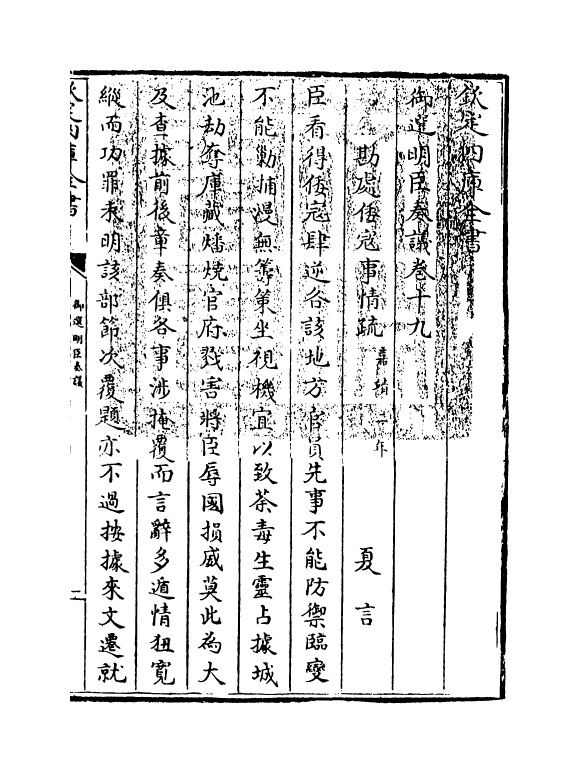 欽定四庫全書
御選明臣奏議卷十九
勘處倭寇事情疏 嘉靖二年 夏言
臣看得倭寇肆逆各該地方官員先事不能防禦臨變
不能勦捕漫無籌策坐視機宜以致荼毒生靈占據城
池劫奪庫藏燔燒官府戕害將臣辱國損威莫此為大
及查據前後章奏俱各事涉掩覆而言辭多遁情狃寛
縱而功罪未明該部節次覆題亦不過按據來文遷就
欽定四庫全書
御選明臣奏議